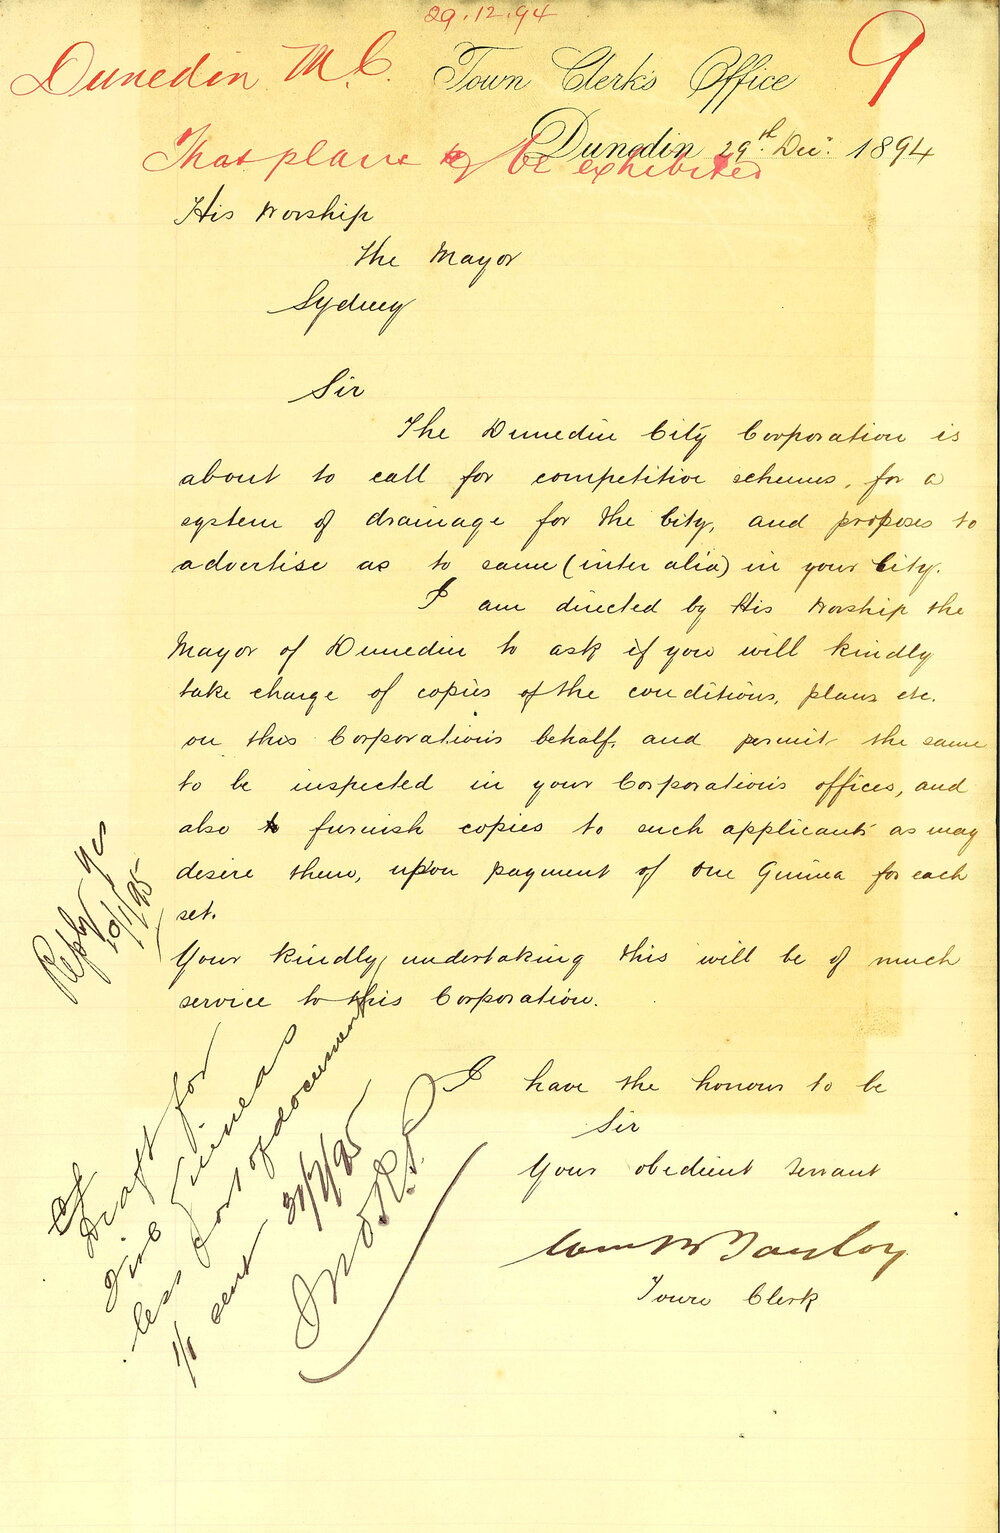 29.12.94
Dunedin M.C.
9
Town Clerk's Office
Dunedin 29th Dec. 1894
That plans to be exhibited
His Worship
the Mayor
Sydney
Sir
The Dunedin City Corporation is
about to call for competitive schemes, for a
system of drainage for the City, and proposes to
advertise as to same (inter alia) in your City.
I am directed by His Worship the
Mayor of Dunedin to ask if you will kindly
take charge of copies of the conditions, plans etc.
on this Corporation's behalf, and permit the same
to be inspected in your Corporation's offices, and
also to furnish copies to such applicants as may
desire them, upon payment of one Guinea for each
set.
Your kindly undertaking this will be of much
service to this Corporation.
I have the honour to be
Sir
Your obedient servant
Town Clerk
Reply Yes
10/1/95
Draft for
five Guineas
less cost of document
1/1 sent 31/7/95